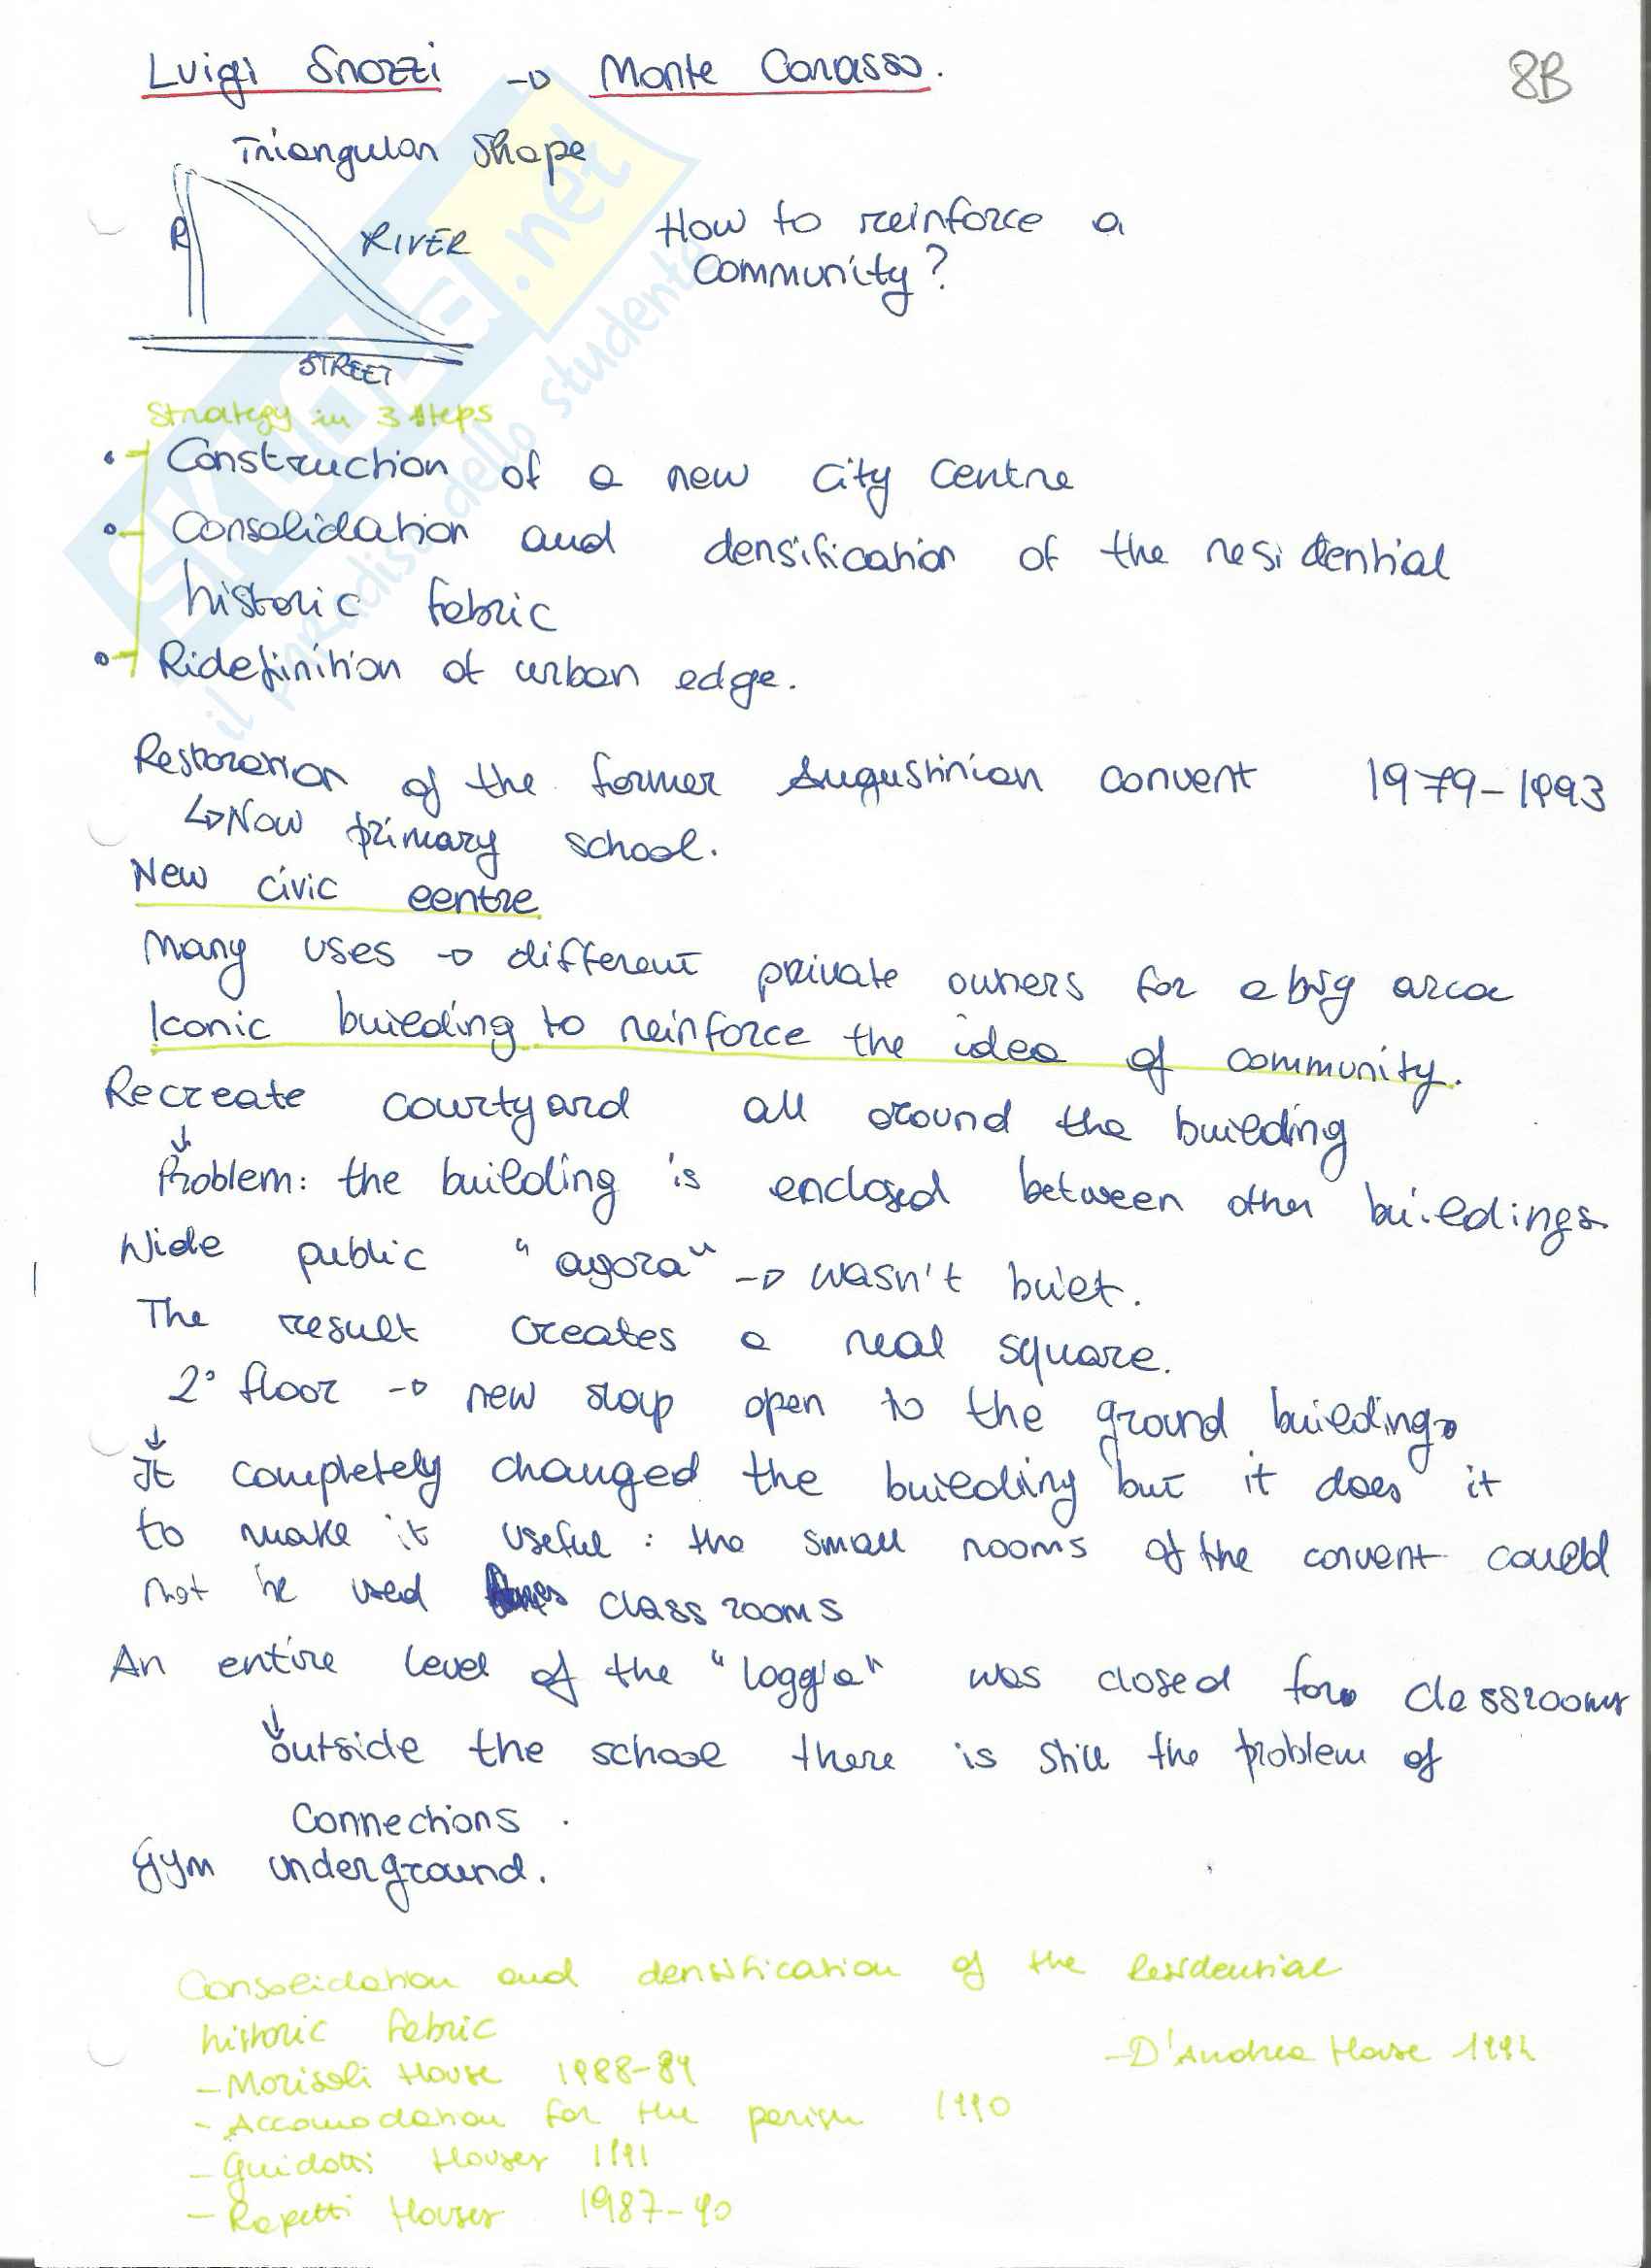 Luigi Snozzi → Monte Carasso.
8B
Triangular Shape
R
RIVER
How to reinforce a
community?
STREET
Strategy in 3 steps
• Construction of a new city centre
• Consolidation and densification of the residential
historic fabric
• Ridefinition of urban edge.
Restoration of the former Augustinian convent 1979-1993
↳ Now primary school.
New civic centre
Many uses → different private owners for a big area
Iconic building to reinforce the idea of community.
Recreate courtyard all around the building
↓
Problem: the building is enclosed between other buildings
Wide public "agora" → wasn't built.
The result creates a real square.
2° floor → new slap open to the ground building
↓
It completely changed the building but it does it
to make it useful: the small rooms of the convent could
not be used classrooms
An entire level of the "loggia" was closed for classrooms
↓
outside the school there is still the problem of
connections.
Gym underground.
Consolidation and densification of the residential
historic fabric
- D'Andrea House 1992
- Morisoli House 1988-89
- Accomodation for the parish 1990
- Guidotti Houses 1991
- Rapetti Houses 1987-90
SKUOLA.net
il paradiso dello studente